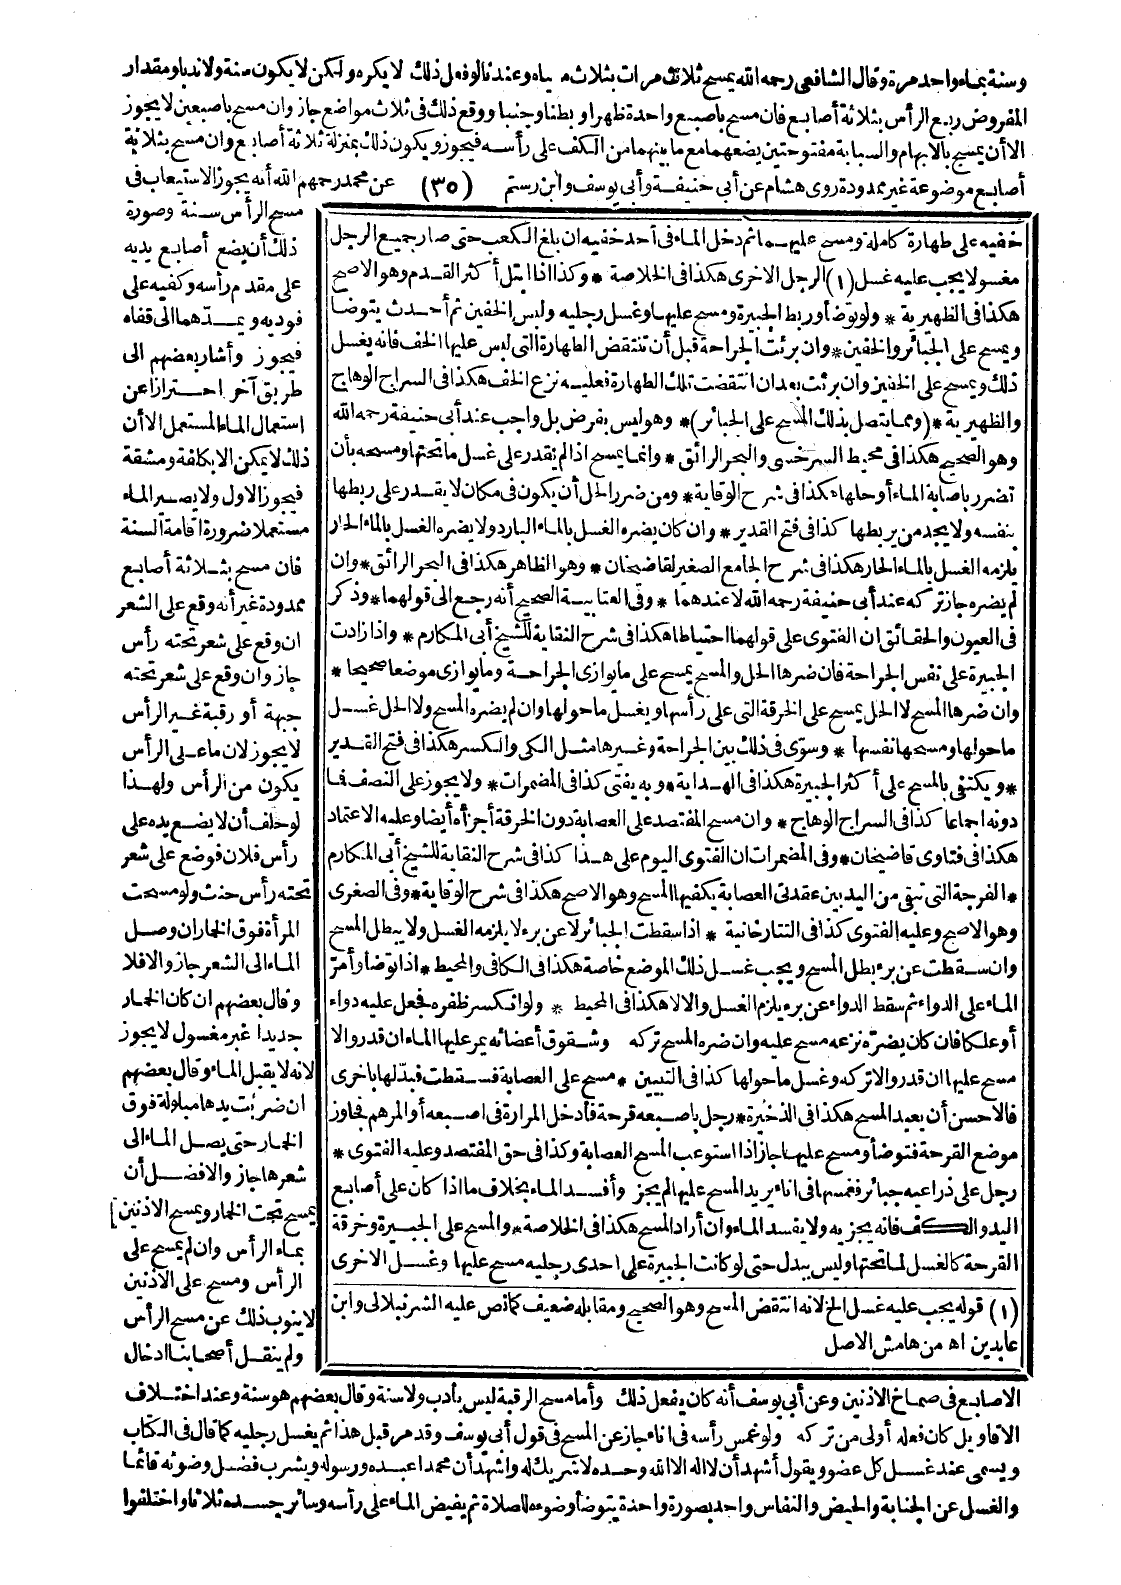 وسنة بماء واحد مرة وقال الشافعي رحمه الله يمسح ثلاث مرات بثلاث مياه وعندنا لو فعل ذلك لا يكره ولكن لا يكون سنة ولا ندبا ومقدار
المفروض ربع الرأس بثلاثة أصابع فان مسح باصبع واحدة ظهرا وبطنا وجنبا ووقع ذلك في ثلاث مواضع جاز وان مسح باصبعين لا يجوز
الا أن يمسح بالابهام والسبابة مفتوحتين يضعهما مع ما بينهما من الكف على رأسه فيجوز ويكون ذلك بمنزلة ثلاثة أصابع وان مسح بثلاثة
أصابع موضوعة غير ممدودة روى هشام عن أبي حنيفة وأبي يوسف وابن رستم (٣٥) عن محمد رحمهم الله أنه يجوز الاستيعاب في
مسح الرأس سنة وصورة
ذلك أن يضع أصابع يديه
على مقدم رأسه وكفيه على
فوديه ويمدهما الى قفاه
فيجوز وأشار بعضهم الى
طريق آخر احترازا عن
استعمال الماء المستعمل الا أن
ذلك لا يمكن الا بكلفة ومشقة
فيجوز الاول ولا يصير الماء
مستعملا ضرورة اقامة السنة
فان مسح بثلاثة أصابع
ممدودة غير أنه وقع على الشعر
ان وقع على شعر تحته رأس
جاز وان وقع على شعر تحته
جبهة أو رقبة غير الرأس
لا يجوز لان ما على الرأس
يكون من الرأس ولهذا
لو حلف أن لا يضع يده على
رأس فلان فوضع على شعر
تحته رأس حنث ولو مسحت
المرأة فوق الخمار ان وصل
الماء الى الشعر جاز والا فلا
وقال بعضهم ان كان الخمار
جديدا غير مغسول لا يجوز
لانه لا يقبل الماء وقال بعضهم
ان ضربت يدها مبلولة فوق
الخمار حتى يصل الماء الى
شعرها جاز والافضل أن
يمسح تحت الخمار ويمسح الاذنين
بماء الرأس وان لم يمسح على
الرأس ومسح على الاذنين
لا ينوب ذلك عن مسح الرأس
ولم ينقل أصحابنا ادخال
خفيه على طهارة كاملة ومسح عليهما ثم دخل الماء في أحد خفيه ان بلغ الكعب حتى صار جميع الرجل
مغسولا يجب عليه غسل (١) الرجل الاخرى هكذا في الخلاصة * وكذا اذا ابتل أكثر القدم وهو الاصح
هكذا في الظهيرية * ولو توضأ وربط الجبيرة ومسح عليها وغسل رجليه ولبس الخفين ثم أحدث يتوضأ
ويمسح على الجبائر والخفين * وان برئت الجراحة قبل أن تنتقض الطهارة التي لبس عليها الخف فانه يغسل
ذلك ويمسح على الخفين وان برئت بعد ان انتقضت تلك الطهارة فعليه نزع الخف هكذا في السراج الوهاج
والظهيرية * (ومما يتصل بذلك المسح على الجبائر) * وهو ليس بفرض بل واجب عند أبي حنيفة رحمه الله
وهو الصحيح هكذا في محيط السرخسي والبحر الرائق * وانما يمسح اذا لم يقدر على غسل ما تحتها ومسحه بأن
تضرر باصابة الماء أو حلها هكذا في شرح الوقاية * ومن ضرر الحل أن يكون في مكان لا يقدر على ربطها
بنفسه ولا يجد من يربطها كذا في فتح القدير * وان كان يضره الغسل بالماء البارد ولا يضره الغسل بالماء الحار
يلزمه الغسل بالماء الحار هكذا في شرح الجامع الصغير لقاضيخان * وهو الظاهر هكذا في البحر الرائق * وان
لم يضره جاز تركه عند أبي حنيفة رحمه الله لا عندهما * وفي العتابية الصحيح أنه رجع الى قولهما * وذكر
في العيون والحقائق ان الفتوى على قولهما احتياطا هكذا في شرح النقاية للشيخ أبي المكارم * واذا زادت
الجبيرة على نفس الجراحة فان ضرها الحل والمسح يمسح على ما يوازى الجراحة وما يوازى موضعا صحيحا *
وان ضرها المسح لا الحل يمسح على الخرقة التي على رأسها ويغسل ما حولها وان لم يضره المسح ولا الحل غسل
ما حولها ومسحها نفسها * وسوّى في ذلك بين الجراحة وغيرها مثل الكي والكسر هكذا في فتح القدير
* ويكتفى بالمسح على أكثر الجبيرة هكذا في الهداية * وبه يفتى كذا في المضمرات * ولا يجوز على النصف فما
دونه اجماعا كذا في السراج الوهاج * وان مسح المفتصد على العصابة دون الخرقة أجزأه أيضا وعليه الاعتماد
هكذا في فتاوى قاضيخان * وفي المضمرات ان الفتوى اليوم على هذا كذا في شرح النقاية للشيخ أبي المكارم
* الفرجة التي تبقى من اليد بين عقدتي العصابة يكفيها المسح وهو الاصح هكذا في شرح الوقاية * وفي الصغرى
وهو الاصح وعليه الفتوى كذا في التتارخانية * اذا سقطت الجبائر لا عن برء لا يلزمه الغسل ولا يبطل المسح
وان سقطت عن برء بطل المسح ويجب غسل ذلك الموضع خاصة هكذا في الكافي والمحيط * اذا توضأ وأمرّ
الماء على الدواء ثم سقط الدواء عن برء يلزم الغسل والا لا هكذا في المحيط * ولو انكسر ظفره فجعل عليه دواء
أو علكا فان كان يضره نزعه مسح عليه وان ضره المسح تركه وشقوق أعضائه يمر عليها الماء ان قدر والا
مسح عليها ان قدر والا تركه وغسل ما حولها كذا في التبيين * مسح على العصابة فسقطت فبدّلها باخرى
فالاحسن أن يعيد المسح هكذا في الذخيرة * رجل باصبعه قرحة فأدخل المرارة في اصبعه أو المرهم فجاوز
موضع القرحة فتوضأ ومسح عليها جاز اذا استوعب المسح العصابة وكذا في حق المفتصد وعليه الفتوى *
رجل على ذراعيه جبائر فغمسها في اناء يريد المسح عليها لم يجز وأفسد الماء بخلاف ما اذا كان على أصابع
اليد والكف فانه يجزيه ولا يفسد الماء وان أراد المسح هكذا في الخلاصة * والمسح على الجبيرة وخرقة
القرحة كالغسل لما تحتها وليس ببدل حتى لو كانت الجبيرة على احدى رجليه مسح عليها وغسل الاخرى
(١) قوله يجب عليه غسل الخ لانه انتقض المسح وهو الصحيح ومقابله ضعيف كما نص عليه الشرنبلالي وابن
عابدين اه من هامش الاصل
الاصابع في صماخ الاذنين وعن أبي يوسف أنه كان يفعل ذلك وأما مسح الرقبة ليس بأدب ولا سنة وقال بعضهم هو سنة وعند اختلاف
الاقاويل كان فعله أولى من تركه ولو غمس رأسه في اناء جاز عن المسح في قول أبي يوسف وقد مر قبل هذا ثم يغسل رجليه كما قال في الكتاب
ويسمى عند غسل كل عضو ويقول أشهد أن لا اله الا الله وحده لا شريك له واشهد أن محمدا عبده ورسوله ويشرب فضل وضوئه قائما
والغسل عن الجنابة والحيض والنفاس واحد بصورة واحدة يتوضأ وضوءه للصلاة ثم يفيض الماء على رأسه وسائر جسده ثلاثا واختلفوا